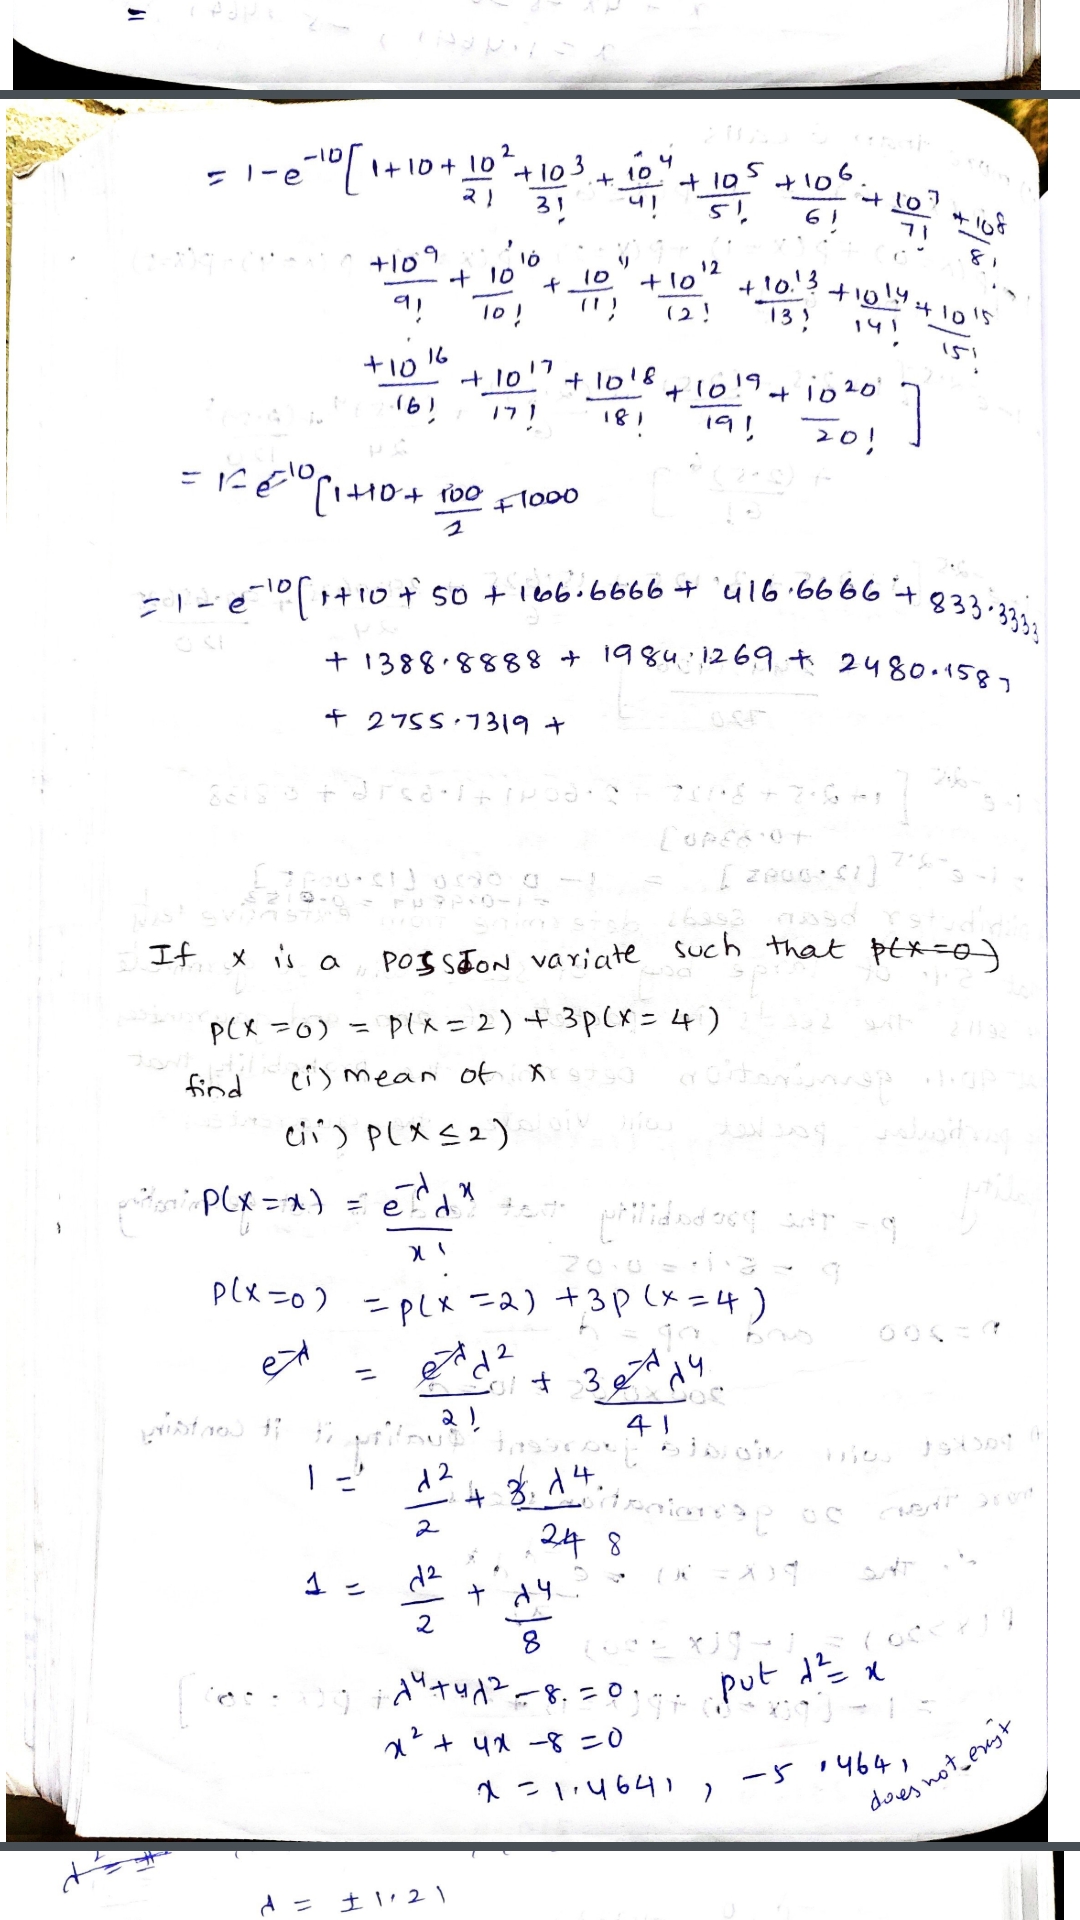 =
= 1-e^-10 [ 1+10+ 10^2/2! + 10^3/3! + 10^4/4! + 10^5/5! + 10^6/6! + 10^7/7! + 10^8/8!
+ 10^9/9! + 10^10/10! + 10^11/11! + 10^12/12! + 10^13/13! + 10^14/14! + 10^15/15!
+ 10^16/16! + 10^17/17! + 10^18/18! + 10^19/19! + 10^20/20! ]
= 1- e^-10 [1+10+ 100/2 + 1000
= 1 - e^-10 [ 1+10 + 50 + 166.6666 + 416.6666 + 833.3333
+ 1388.8888 + 1984.1269 + 2480.1587
+ 2755.7319 +
If x is a POISSION variate such that p(x=0)
P(x=0) = P(x=2) + 3P(x=4)
find (i) mean of x
(ii) P(x≤2)
P(x=x) = e^-λ λ^x / x!
P(x=0) = P(x=2) + 3P(x=4)
e^-λ = e^-λ λ^2 / 2! + 3 e^-λ λ^4 / 4!
1 = λ^2/2 + 3 λ^4/24 8
1 = λ^2/2 + λ^4/8
λ^4+4λ^2-8=0 put λ^2=x
x^2+4x-8=0
x = 1.4641, -5.4641 does not exist
λ = ±1.21